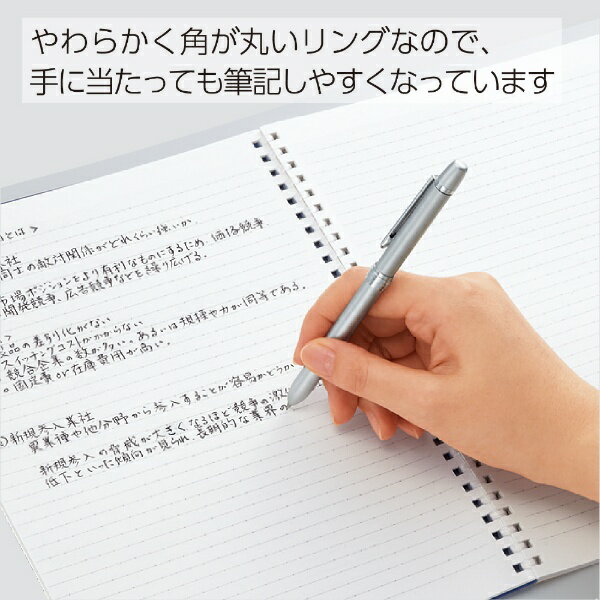 やわらかく角が丸いリングなので、
手に当たっても筆記しやすくなっています
とは >
社
同士の敵対関係がどれくらい強いか
市場ポジションをより有利なものにするため、価格競争
開発競争、広告競争などを繰り広げる。
製品の差別化がない
スイッチングコストがかからない
競合企業の数が多い。あるいは規模や力が同等である。
固定費or在庫費用が高い。
新規参入業社
異業種や他分野から参入することが容易かどうか
新規参入の脅威が大きくなるほど競争の激化
低下といった傾向が見られ、長期的な業界の